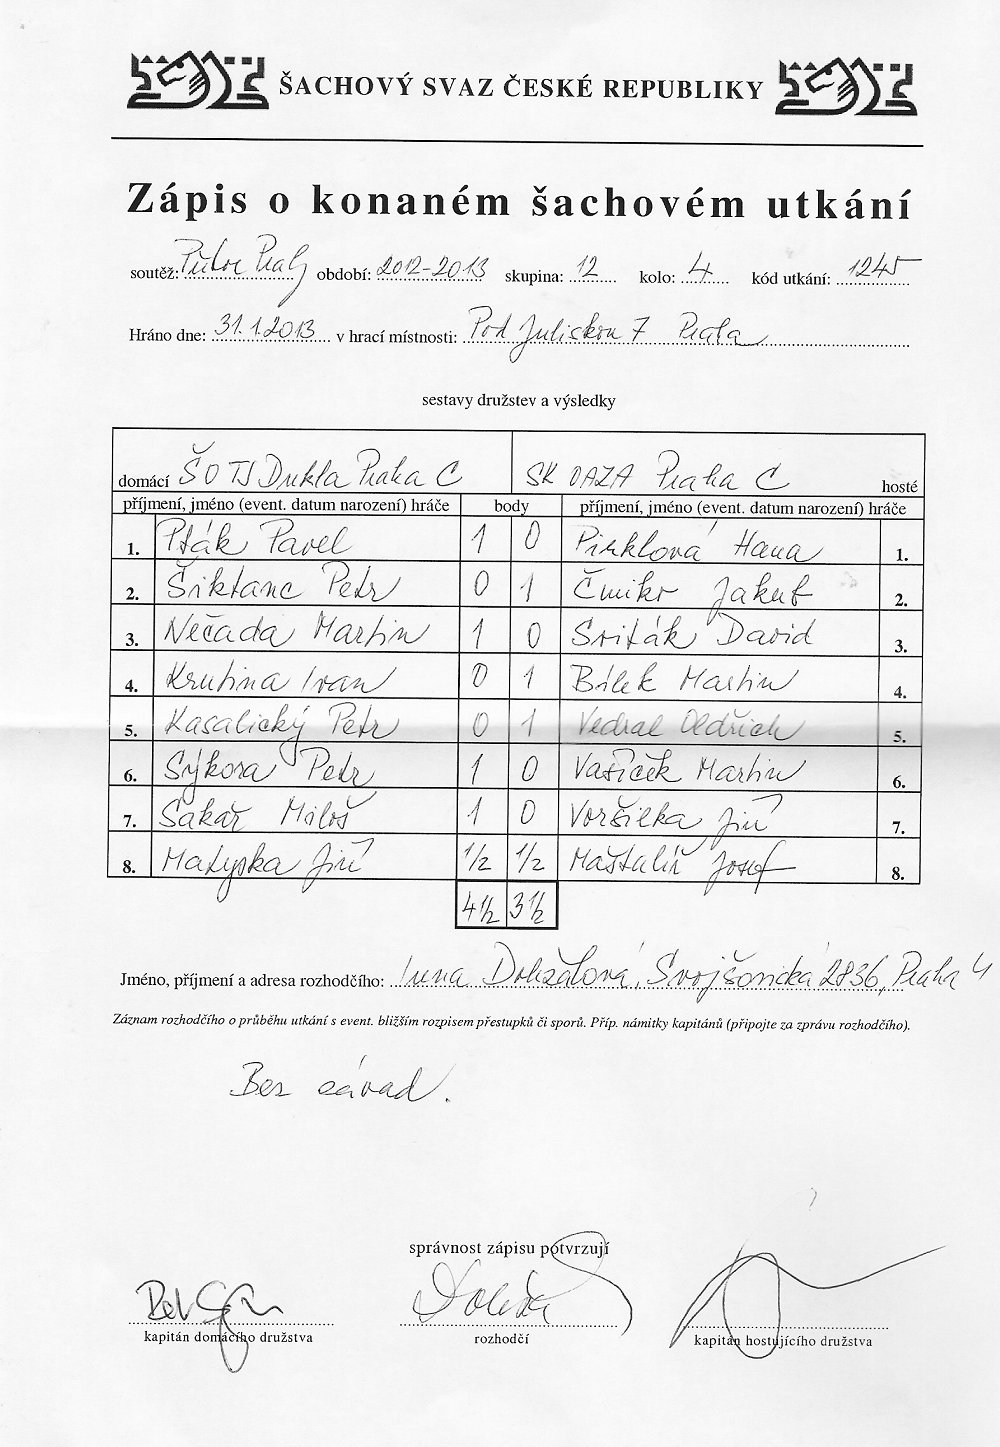 ŠACHOVÝ SVAZ ČESKÉ REPUBLIKY
Zápis o konaném šachovém utkání
soutěž: Přebor Prahy období: 2012-2013 skupina: 12 kolo: 4 kód utkání: 1245
Hráno dne: 31.1.2013 v hrací místnosti: Pod Juliskou 7 Praha
sestavy družstev a výsledky
domácí ŠO TJ Dukla Praha C SK OAZA Praha C hosté
příjmení, jméno (event. datum narození) hráče body příjmení, jméno (event. datum narození) hráče
1. Pták Pavel 1 0 Pirklová Hana 1.
2. Šiktanc Petr 0 1 Čmiko Jakub 2.
3. Nečada Martin 1 0 Sviták David 3.
4. Krutina Ivan 0 1 Bílek Martin 4.
5. Kasalický Petr 0 1 Vedral Oldřich 5.
6. Sýkora Petr 1 0 Vašíček Martin 6.
7. Sakař Miloš 1 0 Voršilka Jiří 7.
8. Matyska Jiří 1/2 1/2 Maštalíř Josef 8.
4 1/2 3 1/2
Jméno, příjmení a adresa rozhodčího: Irena Doležalová, Svojšovická 2836, Praha 4
Záznam rozhodčího o průběhu utkání s event. bližším rozpisem přestupků či sporů. Příp. námitky kapitánů (připojte za zprávu rozhodčího).
Bez závad.
správnost zápisu potvrzují
kapitán domácího družstva rozhodčí kapitán hostujícího družstva